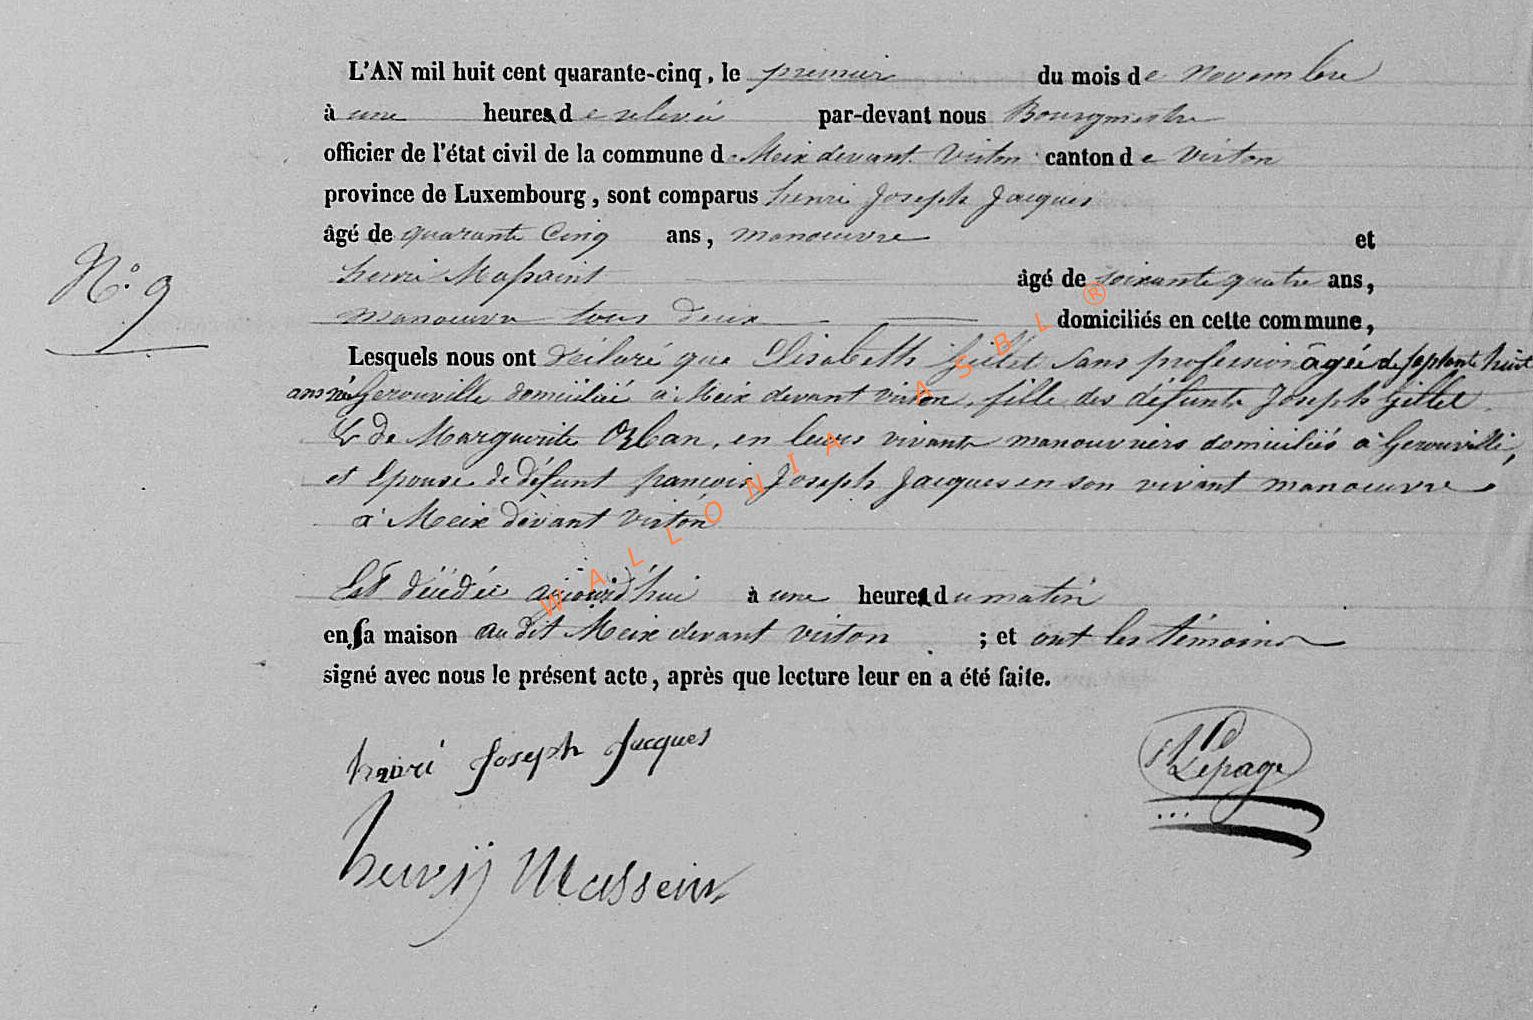 L'AN mil huit cent quarante-cinq, le premier du mois de novembre
à une heures de relevée par-devant nous Bourgmestre
officier de l'état civil de la commune de Meix devant Virton canton de Virton
province de Luxembourg, sont comparus henri Joseph Jacques
âgé de quarante Cinq ans, manoeuvre et
henri Massaint âgé de soixante quatre ans,
manoeuvre tous deux domiciliés en cette commune,
Lesquels nous ont déclaré que Elisabeth Gillet sans profession âgée de septante huit
ans né Gerouville domicilié à Meix devant virton, fille des défunts Joseph Gillet
& de Marguerite Orban, en leurs vivants manouvriers domiciliés à Gerouville,
et Epouse de défunt françois Joseph Jacques en son vivant manoeuvre
à Meix devant Virton
Est décédée aujourd'hui à une heures du matin
en sa maison audit Meix devant virton ; et ont les témoins
signé avec nous le présent acte, après que lecture leur en a été faite.
N° 9
henri Joseph Jacques
Lepage
henry Massein
WALLONIA ASBL ®